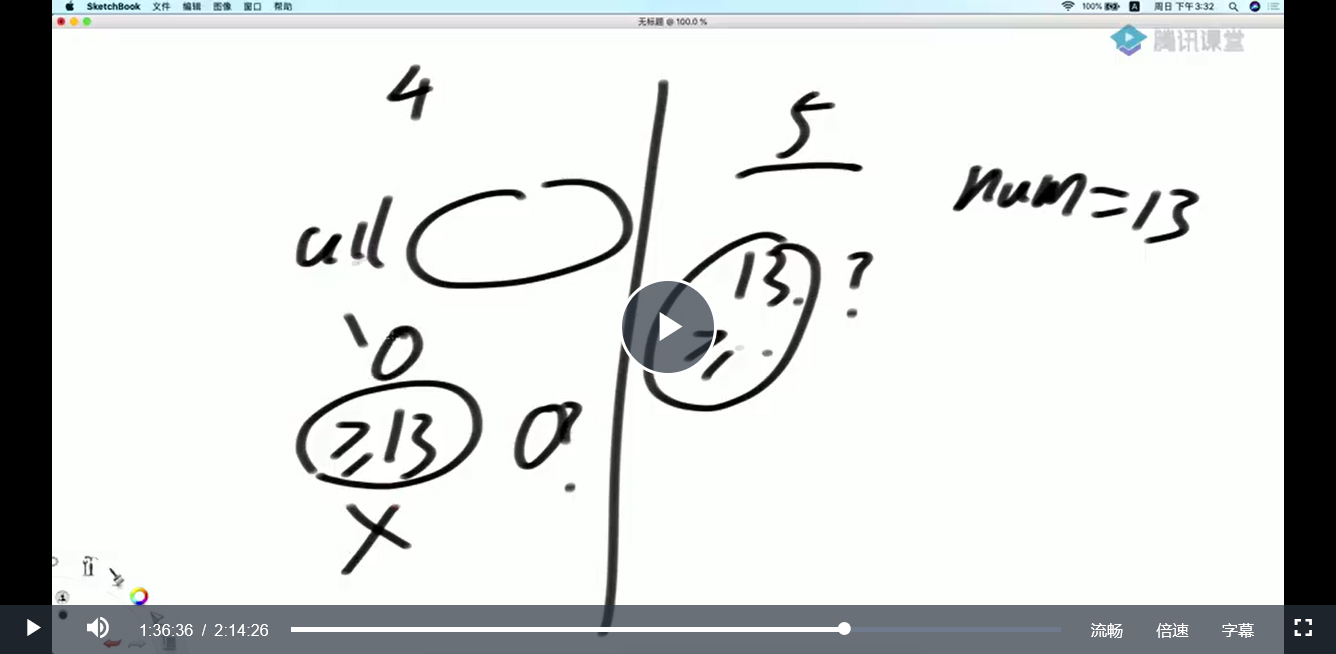 SketchBook 文件 编辑 图像 窗口 帮助 100% 周日 下午3:32
无标题 @ 100.0 %
腾讯课堂
4
5
num=13
all
13 ?
≥
0
≥13 0?
X
1:36:36 / 2:14:26 流畅 倍速 字幕